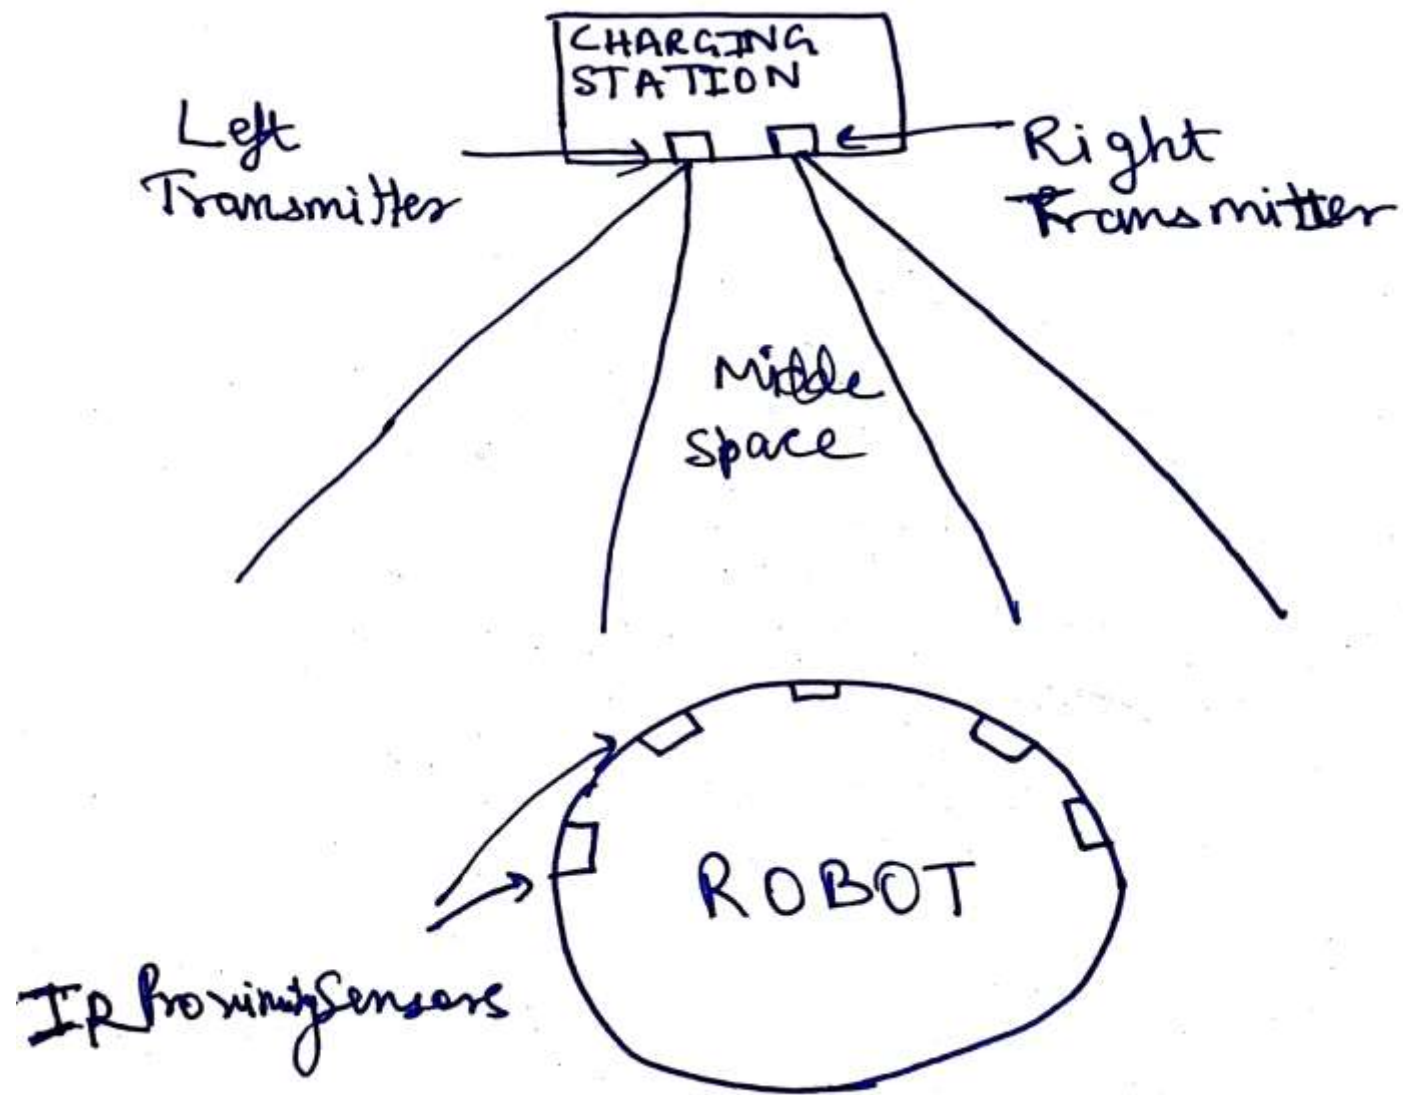 CHARGING
STATION
Left
Transmitter
Right
Transmitter
Middle
space
ROBOT
IR Proximity Sensors